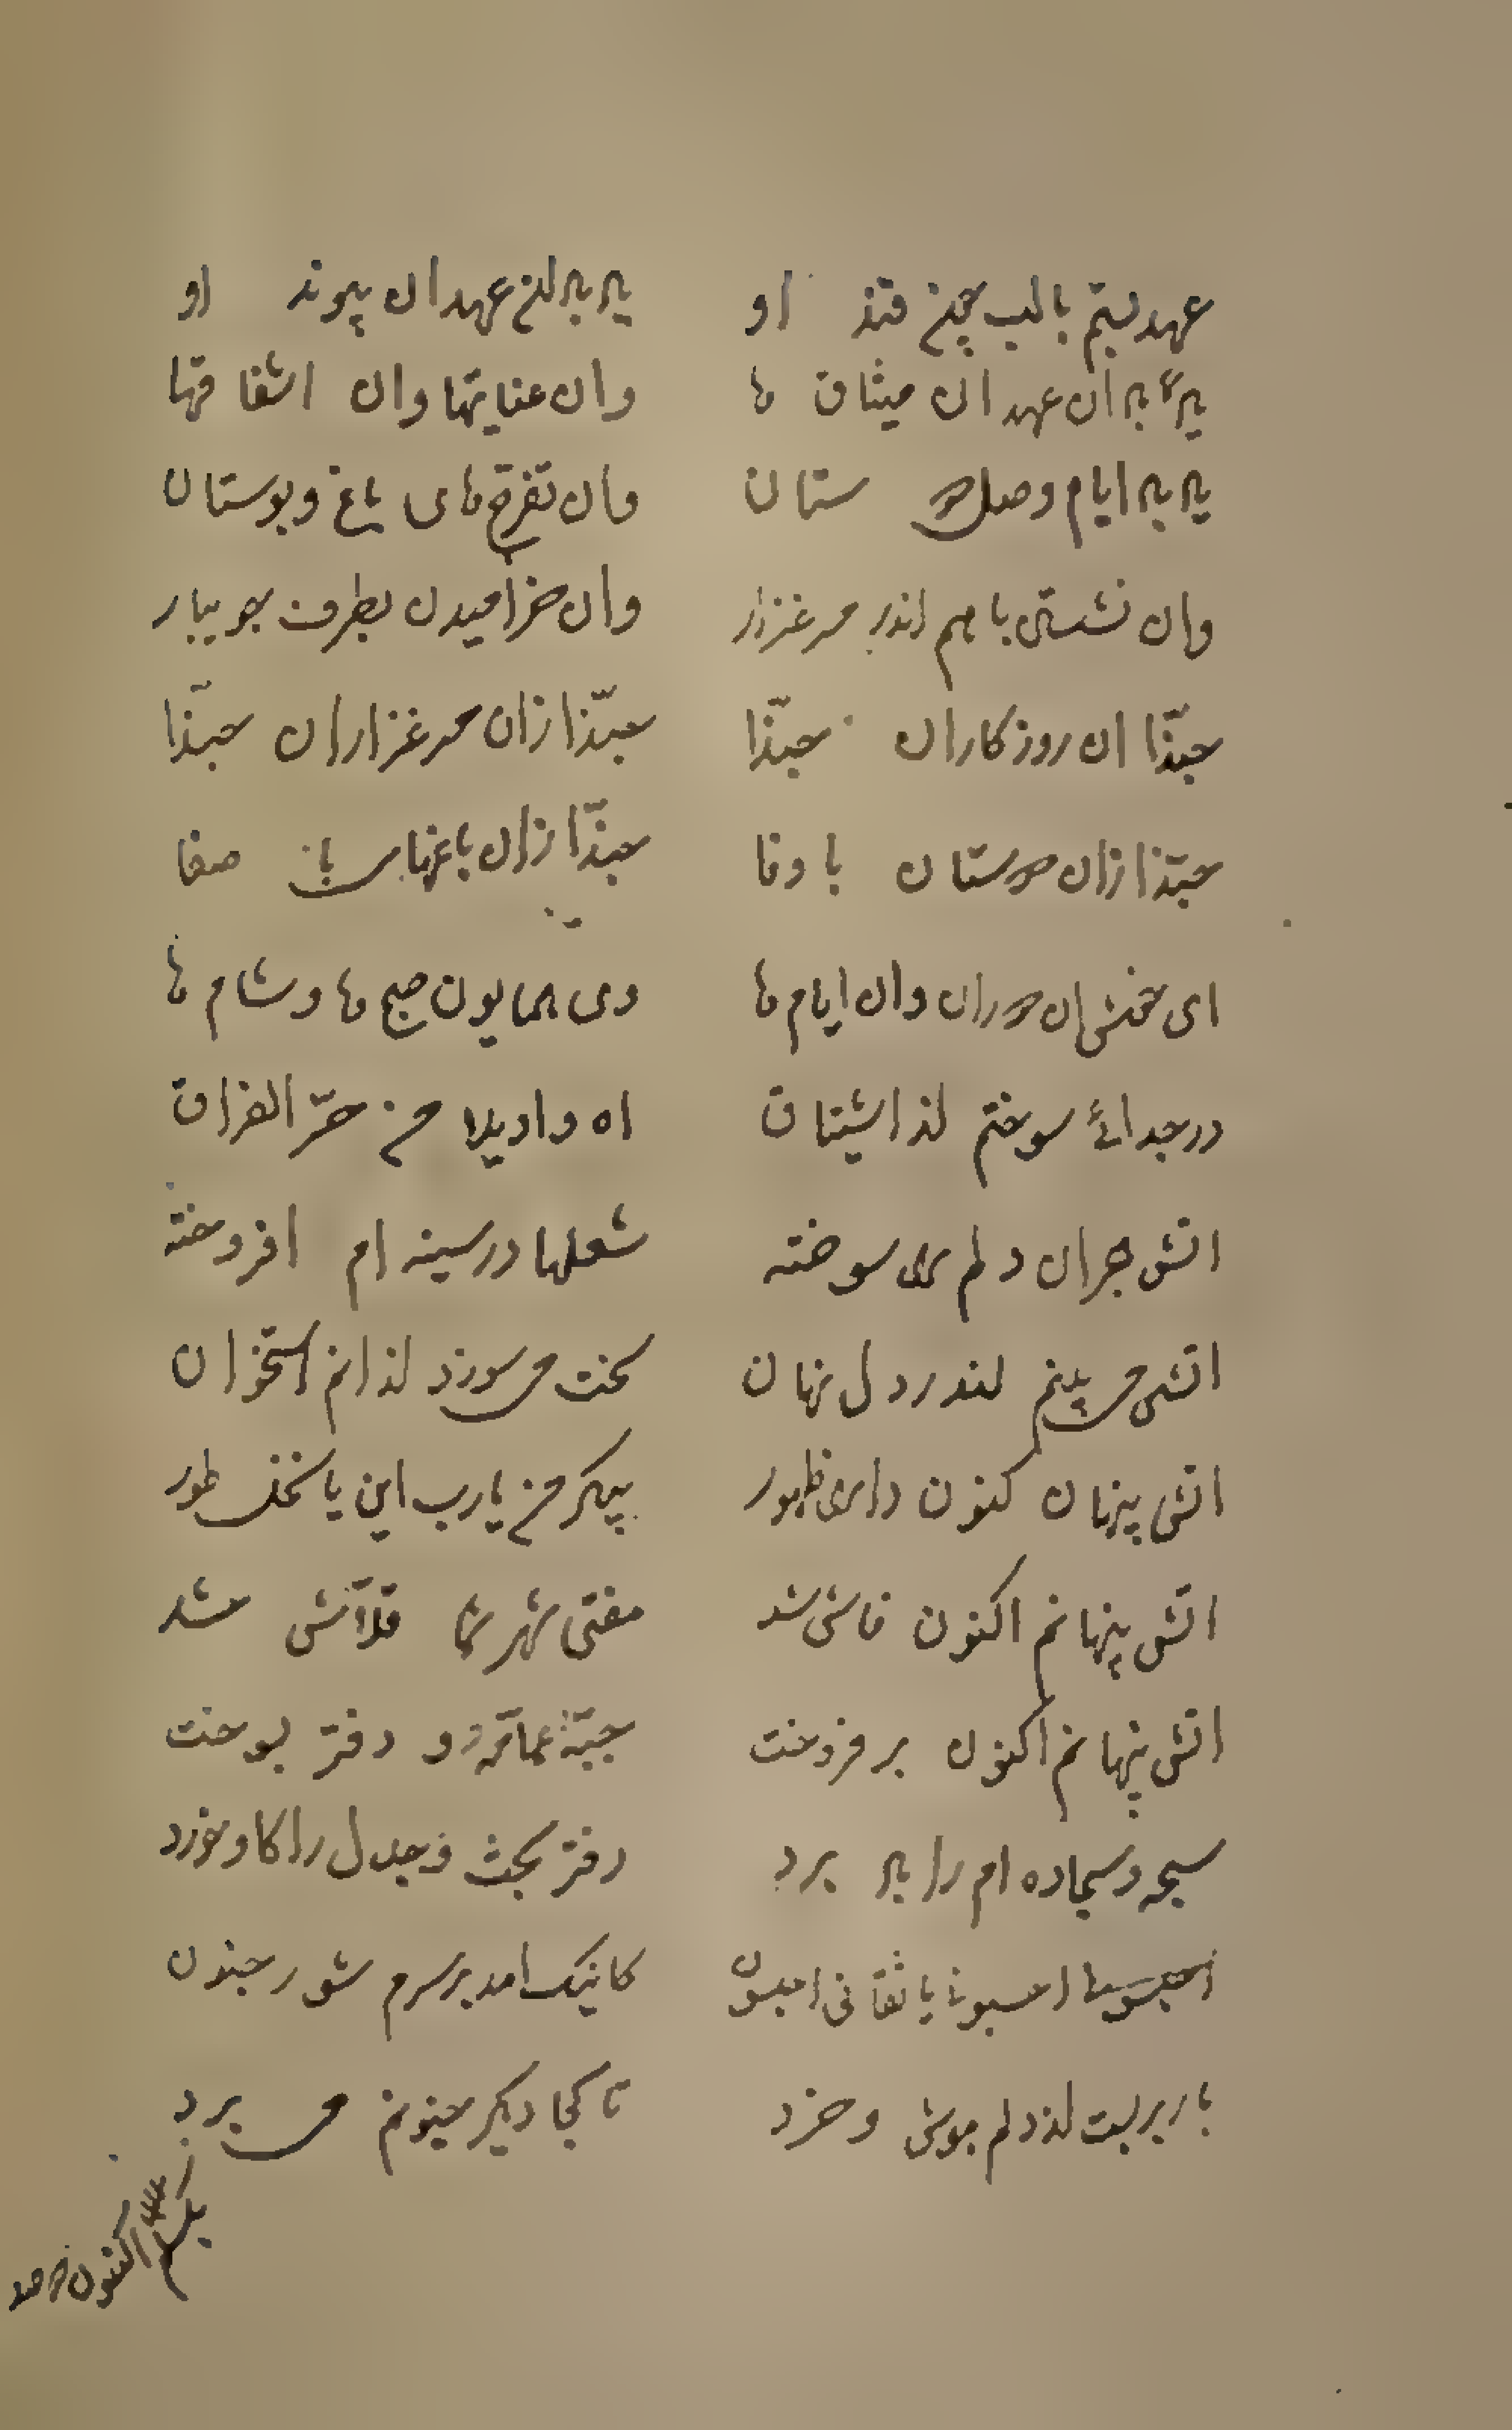 عهد بستم با لب چون قند او یه به از عهد ان پیوند او
یه به ان عهد ان میثاق ها وان عنایتها وان اشفاقها
یه به ایام وصل دوستان وان تفرج های باغ و بوستان
وان نشستن با هم اندر مرغزار وان خرامیدن بطرف جویبار
حبّذا ان روزکاران حبّذا حبّذا زان مرغزاران حبّذا
حبّذا زان دوستان با وفا حبّذا زان باغهای با صفا
ای خوش ان دوران وان ایام ها وی همایون صبح ها و شام ها
در جدائی سوختم از اشتیاق اه واویلا من حرّ الفراق
اتش هجران دلم را سوخته شعلها در سینه ام افروخته
اتشی می بینم اندر دل نهان سخت می سوزد از انم استخوان
اتش پنهان کنون دارد ظهور پیکر من یا رب این یا نخل طور
اتش پنهانم اکنون فاش شد مفتی شهر شما قلّاش شد
اتش پنهانم اکنون بر فروخت جبّه عمّامه و دفتر بسوخت
سبحه و سجاده ام را برد دفتر بحث و جدل را کاو خورد
احبسونا احبسونا یا ثقاتی احبسون کاینک امد بر سرم شور جنون
بار بر بست از دلم هوش و خرد تا کجا دیکر جنونم می برد
اکنون